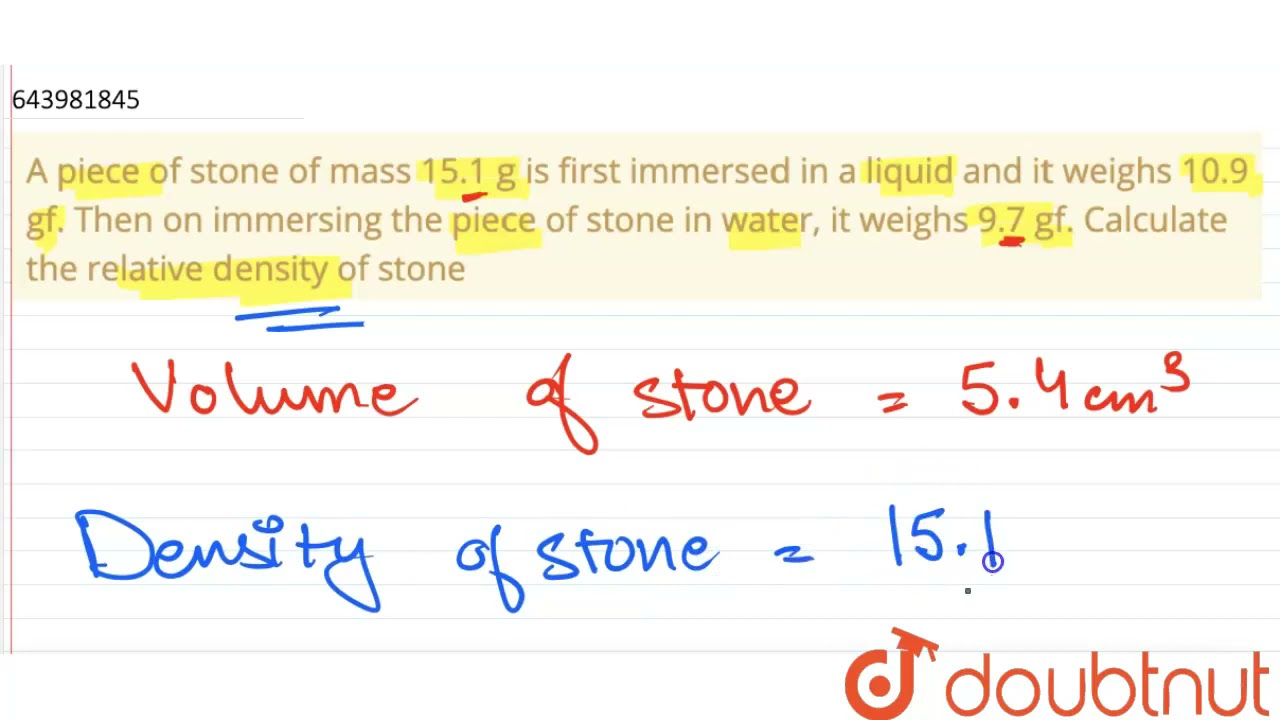 643981845
A piece of stone of mass 15.1 g is first immersed in a liquid and it weighs 10.9
gf. Then on immersing the piece of stone in water, it weighs 9.7 gf. Calculate
the relative density of stone
Volume of stone = 5.4 cm³
Density of stone = 15.1
doubtnut